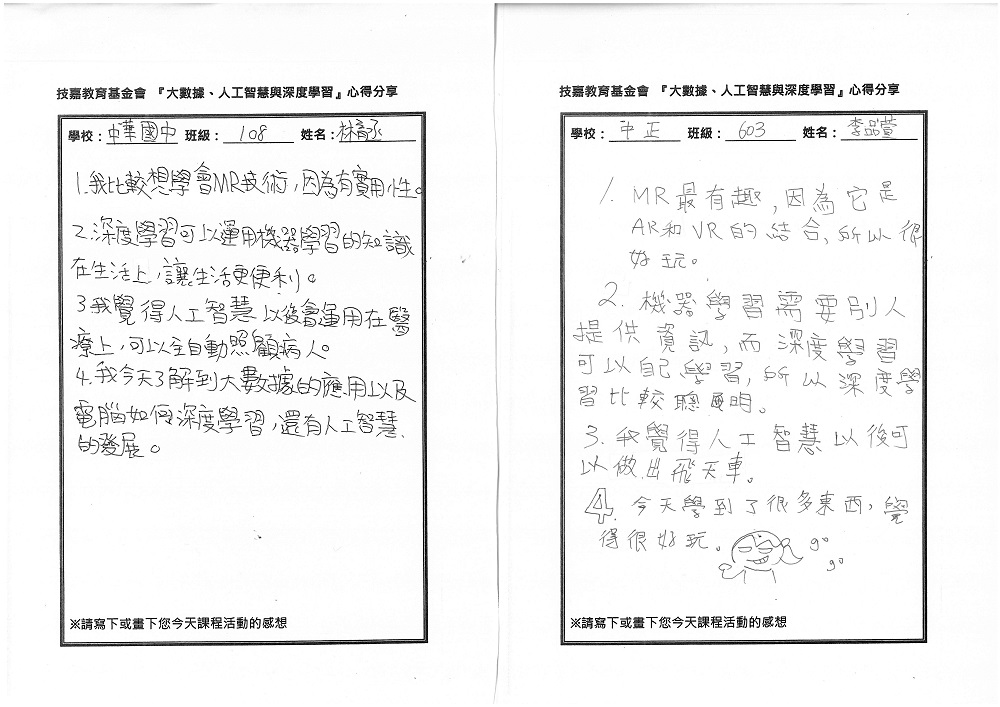 技嘉教育基金會 『大數據、人工智慧與深度學習』心得分享
學校：中華國中 班級：108 姓名：林育丞
1.我比較想學會MR技術，因為有實用性。
2.深度學習可以運用機器學習的知識
在生活上，讓生活更便利。
3我覺得人工智慧以後會運用在醫
療上，可以全自動照顧病人。
4.我今天了解到大數據的應用以及
電腦如何深度學習，還有人工智慧
的發展。
※請寫下或畫下您今天課程活動的感想
技嘉教育基金會 『大數據、人工智慧與深度學習』心得分享
學校：中正 班級：603 姓名：李品萱
1. MR最有趣，因為它是
AR和VR的結合，所以很
好玩。
2. 機器學習需要別人
提供資訊，而深度學習
可以自己學習，所以深度學
習比較聰明。
3. 我覺得人工智慧以後可
以做出飛天車。
4. 今天學到了很多東西，覺
得很好玩。
go
go
※請寫下或畫下您今天課程活動的感想